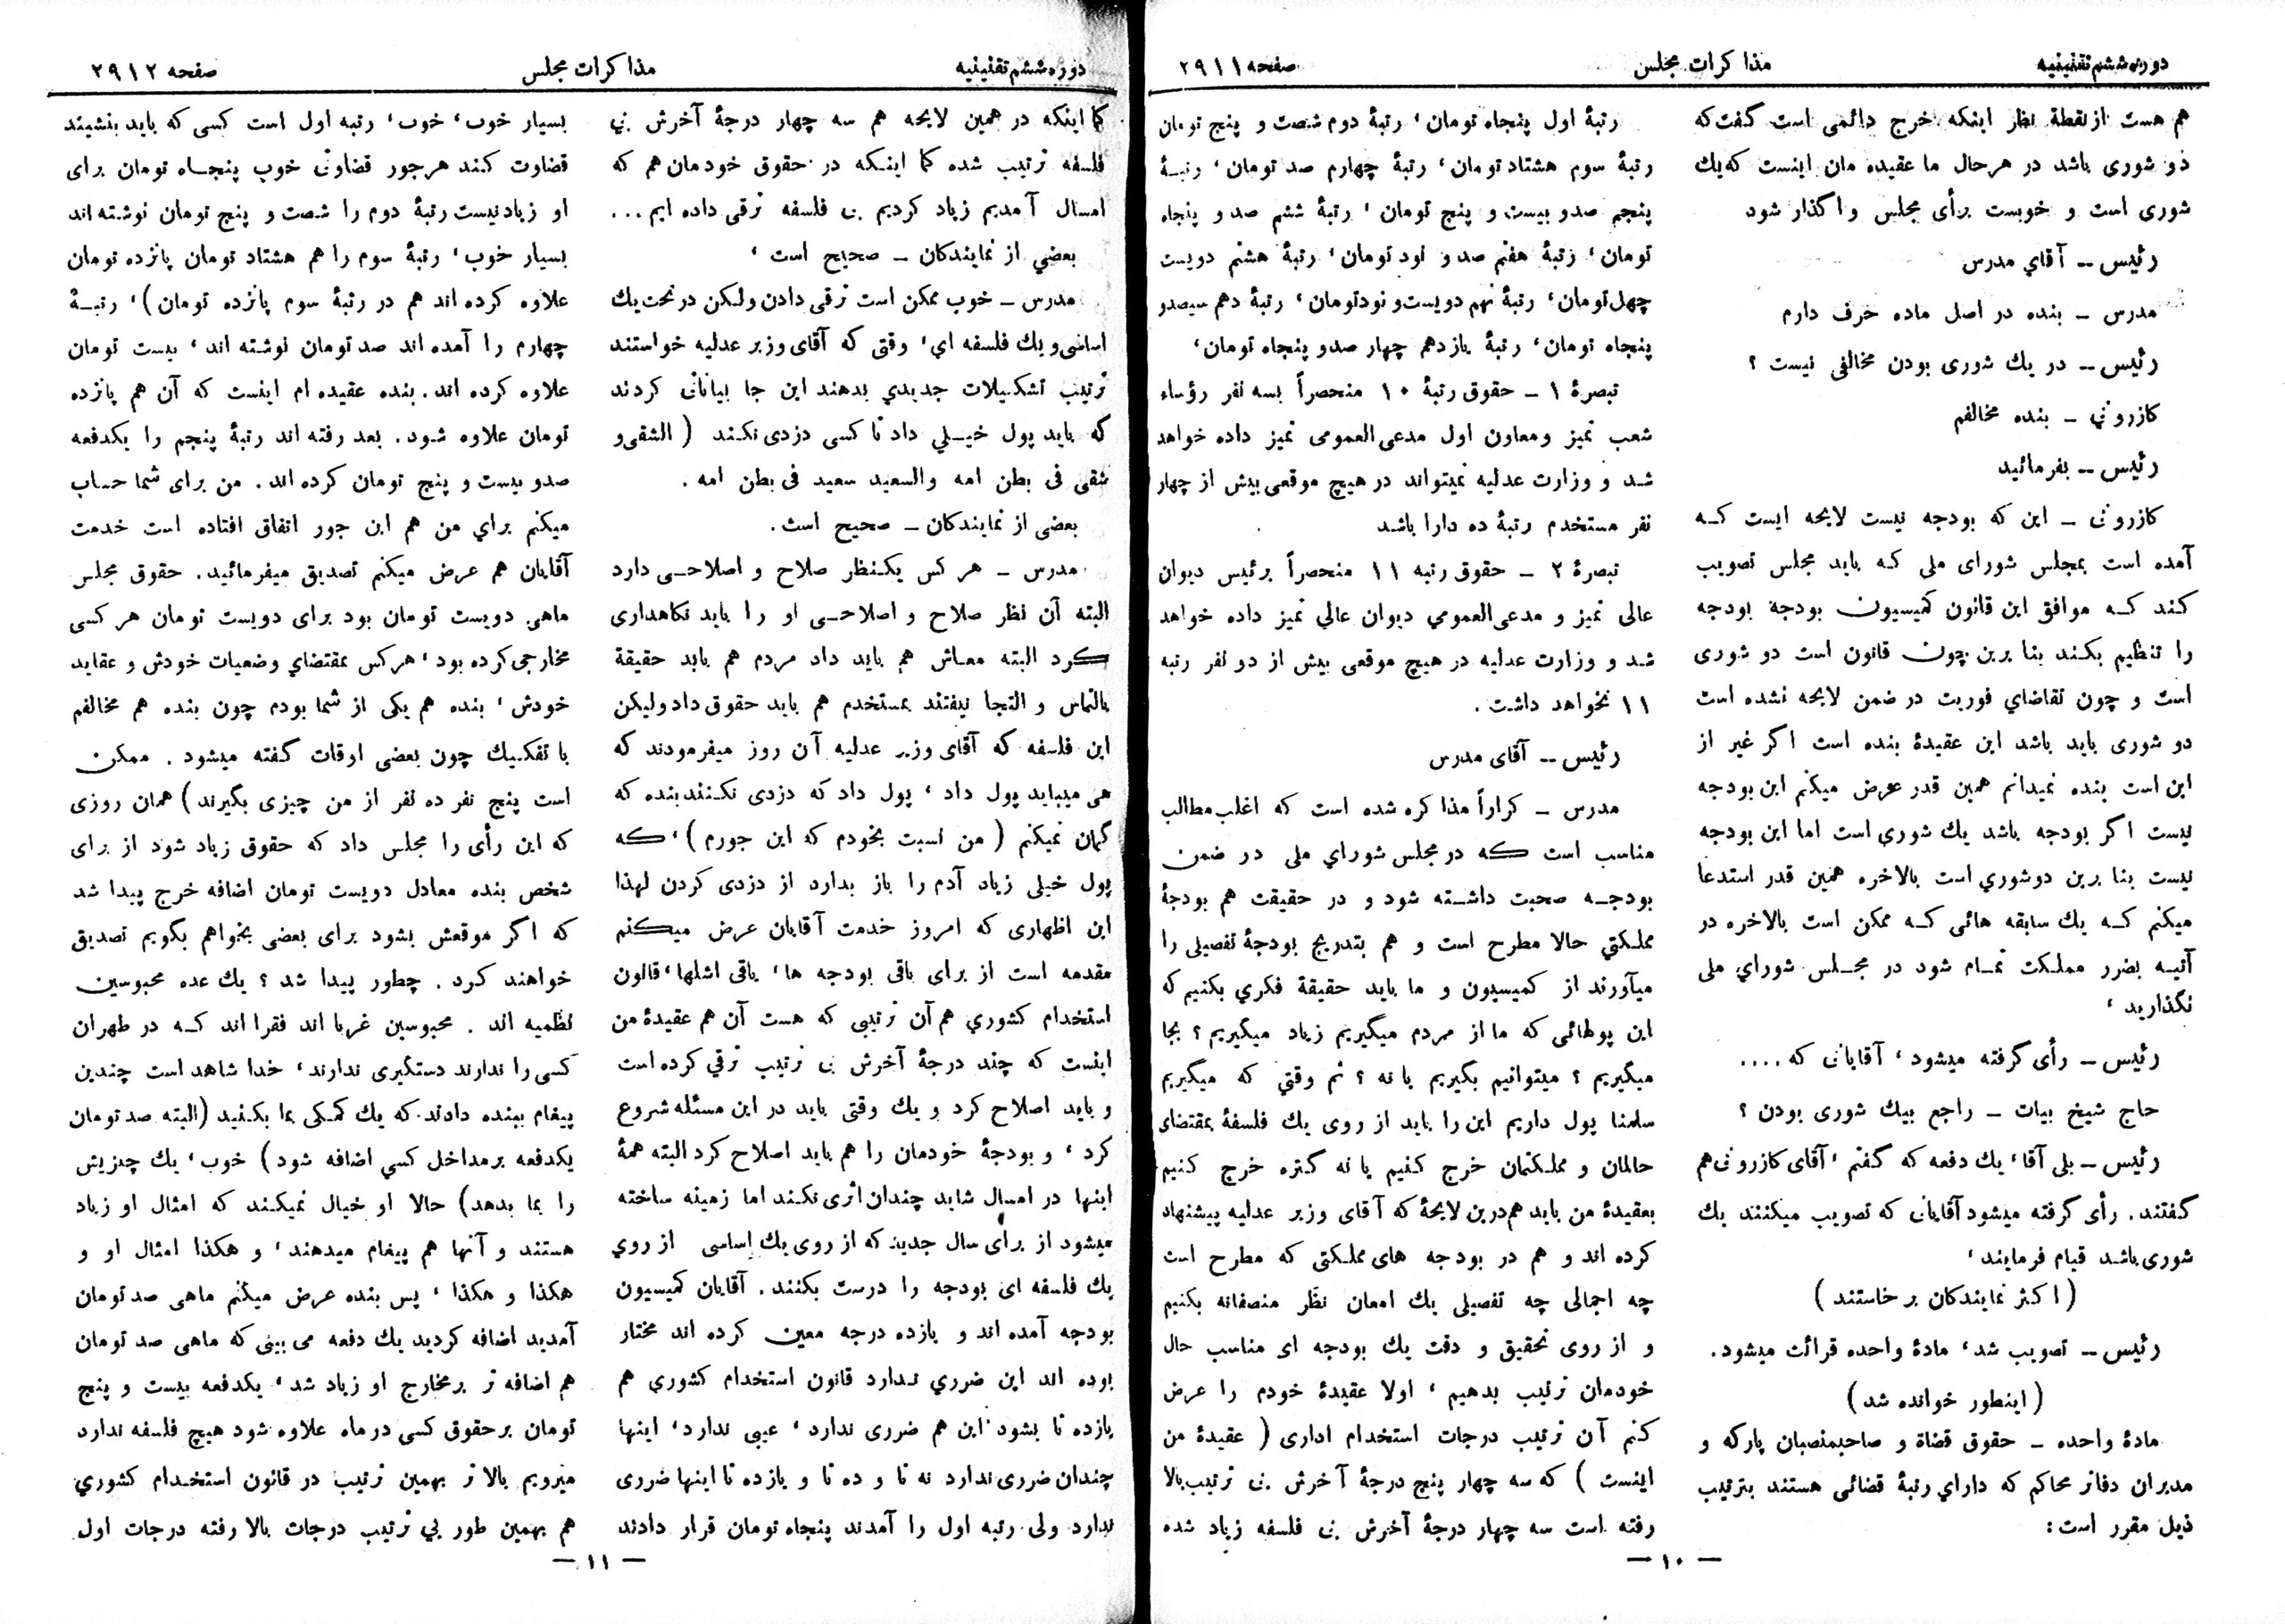 دوره ششم تقنینیه
مذاکرات مجلس
صفحه ۲۹۱۱
هم هست از نقطة نظر اینکه خرج دائمی است گفت که
ذو شوری باشد در هرحال ما عقیده مان اینست که یك
شوری است و خوبست برأی مجلس واگذار شود
رئیس -- آقاي مدرس
مدرس – بنده در اصل ماده حرف دارم
رئیس -- در یك شوری بودن مخالفی نیست ؟
کازرونی – بنده مخالفم
رئیس -- بفرمائید
کازرونی – این که بودجه نیست لایحه ایست کـه
آمده است بمجلس شورای ملی کـه باید مجلس تصویب
کند کـه موافق این قانون کمیسیون بودجه بودجه
را تنظیم بکند بنا برین چون قانون است دو شوری
است و چون تقاضاي فوریت در ضمن لایحه نشده است
دو شوری باید باشد این عقیدة بنده است اکر غیر از
این است بنده نمیدانم همین قدر عرض میکنم این بودجه
نیست اکر بودجه باشد یك شوری است اما این بودجه
نیست بنا برین دوشوري است بالاخره همین قدر استدعا
میکنم کـه یك سابقه هائی کـه ممکن است بالاخره در
آتیـه بضرر مملکت تمـام شود در مجـلس شوراي ملی
نگذارید ،
رئیس – رأی گرفته میشود ، آقایانی که ....
حاج شیخ بیات – راجع بیك شوری بودن ؟
رئیس – بلی آقا ، یك دفعه که گفتم ، آقای کازرونی هم
گفتند . رأی گرفته میشود آقایانی که تصویب میکنند یك
شوری باشد قیام فرمایند ،
( اکثر نمایندکان برخاستند )
رئیس – تصویب شد ، مادۀ واحده قرائت میشود .
( اینطور خوانده شد )
مادۀ واحده – حقوق قضاة و صاحبمنصبان پارکه و
مدیران دفاتر محاکم که داراي رتبۀ قضائی هستند بترتیب
ذیل مقرر است :
رتبۀ اول پنجاه تومان ، رتبۀ دوم شصت و پنج تومان
رتبۀ سوم هشتاد تومان ، رتبۀ چهارم صد تومان ، رتبـۀ
پنجم صدو بیست و پنج تومان ، رتبۀ ششم صد و پنجاه
تومان ، رتبۀ هفتم صد و نود تومان ، رتبۀ هشتم دویست
چهل تومان ، رتبۀ نهم دویست و نود تومان ، رتبۀ دهم سیصدو
پنجاه تومان ، رتبۀ یازدهم چهار صدو پنجاه تومان ،
تبصرۀ ۱ – حقوق رتبۀ ۱۰ منحصراً بسه نفر رؤساء
شعب تمیز و معاون اول مدعی العمومی تمیز داده خواهد
شد و وزارت عدلیه نمیتواند در هیچ موقعی بیش از چهار
نفر مستخدم رتبۀ ده دارا باشد
تبصرۀ ۲ – حقوق رتبه ۱۱ منحصراً برئیس دیوان
عالی تمیز و مدعی العمومي دیوان عالي تمیز داده خواهد
شد و وزارت عدلیه در هیچ موقعی بیش از دو نفر رتبه
۱۱ نخواهد داشت .
رئیس -- آقای مدرس
مدرس – کراراً مذاکره شده است که اغلب مطالب
مناسب است که در مجلس شوراي ملی در ضمن
بودجـه صحبت داشـته شود و در حقیقت هم بودجۀ
مملکتي حالا مطرح است و هم بتدریج بودجۀ تفصیلی را
میآورند از کمیسیون و ما باید حقیقة فکري بکنیم که
این پولهائی که ما از مردم میگیریم زیاد میگیریم ؟ بجا
میگیریم ؟ میتوانیم بگیریم یا نه ؟ ثم وقتي که میگیریم
سلمنا پول داریم این را باید از روی یك فلسفۀ بمقتضای
حالمان و مملکتمان خرج کنیم یا نه گتره خرج کنیم
بعقیدۀ من باید هم درین لایحۀ که آقای وزیر عدلیه پیشنهاد
کرده اند و هم در بودجه های مملکتی که مطرح است
چه اجمالی چه تفصیلی یك امعان نظر منصفانه بکنیم
و از روی تحقیق و دقت یك بودجه ای مناسب حال
خودمان ترتیب بدهیم ، اولا عقیدۀ خودم را عرض
کنم آن ترتیب درجات استخدام اداری ( عقیدۀ من
اینست ) که سه چهار پنج درجۀ آخرش بی ترتیب بالا
رفته است سه چهار درجۀ آخرش بی فلسفه زیاد شده
— ۱۰ —
دوره ششم تقنینیه
مذاکرات مجلس
صفحه ۲۹۱۲
کما اینکه در همین لایحه هم سه چهار درجۀ آخرش بي
فلسفه ترتیب شده کما اینـکه در حقوق خودمان هم که
امسال آمدیم زیاد کردیم بی فلسفه ترقی داده ایم ...
بعضي از نمایندکان – صحیح است ،
مدرس – خوب ممکن است ترقی دادن ولیکن در تحت یك
اساسی و یك فلسفه اي ، وقتی که آقای وزیر عدلیه خواستند
ترتیب تشکیلات جدیدي بدهند این جا بیاناتی کردند
که باید پول خیـلي داد تا کسی دزدی نکند ( الشقی و
شقی فی بطن امه والسعید سعید فی بطن امه .
بعضی از نمایندکان – صحیح است .
مدرس – هر کس یکـنظر صلاح و اصلاحـی دارد
البته آن نظر صلاح و اصلاحـی او را باید نکاهداری
کرد البته معـاش هم باید داد مردم هم باید حقیقة
بالتماس و التجا نیفتند بمستخدم هم باید حقوق داد ولیکن
این فلسفه که آقای وزیر عدلیه آن روز میفرمودند که
هی میباید پول داد ، پول داد که دزدی نکـنند بنده که
گمان نمیکنم ( من نسبت بخودم که این جورم ) ، که
پول خیلی زیاد آدم را باز بدارد از دزدی کردن لهذا
این اظهاری که امروز خدمت آقایان عرض میکنم
مقدمه است از برای باقی بودجه ها ، باقی اشلها ، قانون
استخدام کشوري هم آن ترتیبی که هست آن هم عقیدۀ من
اینست که چند درجۀ آخرش بی ترتیب ترقي کرده است
و باید اصلاح کرد و یك وقتی باید در این مسئله شروع
کرد ، و بودجۀ خودمان را هم باید اصلاح کرد البته همۀ
اینها در امسال شاید چندان اثری نکند اما زمینه ساخته
میشود از برأی سال جدید که از روی یك اساسی از روي
یك فلسفه ای بودجه را درست بکنند . آقایان کمیسیون
بودجه آمده اند و یازده درجه معین کرده اند مختار
بوده اند این ضرري نـدارد قانون استخدام کشوري هم
یازده تا بشود این هم ضرری ندارد ، عیبی ندارد ، اینها
چندان ضرری ندارد نه تا و ده تا و یازده تا اینها ضرری
ندارد ولی رتبه اول را آمدند پنجاه تومان قرار دادند
بسیار خوب ، خوب ، رتبه اول است کسی که باید بنشیند
قضاوت کنند هرجور قضاوتی خوب پنجـاه تومان برای
او زیاد نیست رتبۀ دوم را شصت و پنج تومان نوشته اند
بسیار خوب ، رتبۀ سوم را هم هشتاد تومان پانزده تومان
علاوه کرده اند هم در رتبۀ سوم پانزده تومان ) ، رتبـۀ
چهارم را آمده اند صد تومان نوشته اند ، بیست تومان
علاوه کرده اند . بنده عقیده ام اینست که آن هم پانزده
تومان علاوه شود . بعد رفته اند رتبۀ پنجم را یکدفعه
صدو بیست و پنج تومان کرده اند . من برای شما حساب
میکنم براي من هم این جور اتفاق افتاده است خدمت
آقایان هم عرض میکنم تصدیق میفرمائید . حقوق مجلس
ماهی دویست تومان بود برای دویست تومان هر کسی
مخارجی کرده بود ، هرکس بمقتضاي وضعیات خودش و عقاید
خودش ، بنده هم یکی از شما بودم چون بنده هم مخالفم
با تفکـیك چون بعضی اوقات گفته میشود . ممکن
است پنج نفر ده نفر از من چیزی بگیرند ) همان روزی
که این رأی را مجلس داد که حقوق زیاد شود از برای
شخص بنده معادل دویست تومان اضافه خرج پیدا شد
که اکر موقعش بشود برای بعضی بخواهم بگویم تصدیق
خواهند کرد . چطور پیدا شد ؟ یك عده محبوسین
نظمیه اند . محبوسین غربا اند فقرا اند کـه در طهران
کسی را ندارند دستگیری ندارند ، خدا شاهد است چندین
پیغام ببنده دادند که یك کمـکی بما بکـنید (البته صد تومان
یکدفعه برمداخل کسي اضافه شود ) خوب ، یك چیزیش
را بما بدهد) حالا او خیال نمیکـند که امثال او زیاد
هستند و آنها هم پیغام میدهند ، و هکذا امثال او و
هکذا و هکذا ، پس بنده عرض میکنم ماهی صد تومان
آمدید اضافه کردید یك دفعه می بینی که ماهی صد تومان
هم اضافه تر برمخارج او زیاد شد ، یکدفعه بیست و پنج
تومان برحقوق کسی در ماه علاوه شود هیچ فلسفه ندارد
میرویم بالاتر بهمین ترتیب در قانون استخـدام کشوري
هم بهمین طور بي ترتیب درجات بالا رفته درجات اول
— ۱۱ —